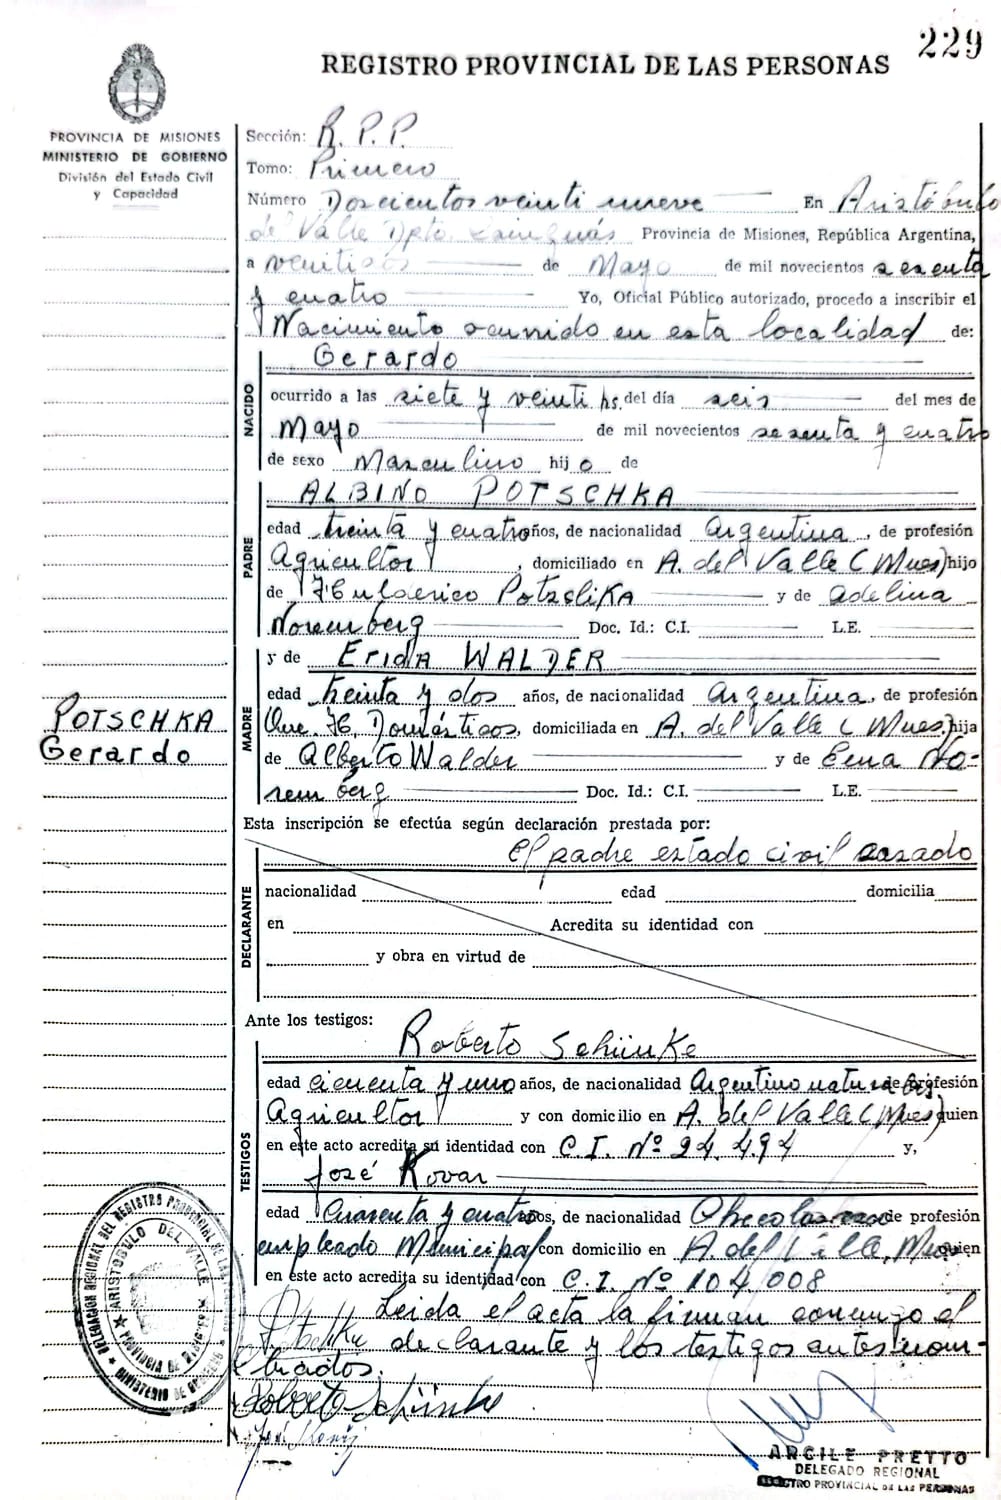 229
REGISTRO PROVINCIAL DE LAS PERSONAS
PROVINCIA DE MISIONES
MINISTERIO DE GOBIERNO
División del Estado Civil
y Capacidad
Sección: R. P. P.
Tomo: Primero
Número Doscientos veinti nueve En Aristóbulo
del Valle Dpto. Cainguás Provincia de Misiones, República Argentina,
a veintidós de Mayo de mil novecientos sesenta
y cuatro Yo, Oficial Público autorizado, procedo a inscribir el
Nacimiento ocurrido en esta localidad de:
Gerardo
NACIDO
ocurrido a las siete y veinti hs. del día seis del mes de
Mayo de mil novecientos sesenta y cuatro
de sexo Masculino hijo de
ALBINO POTSCHKA
PADRE
edad treinta y cuatro años, de nacionalidad Argentina, de profesión
Agricultor, domiciliado en A. del Valle (Mnes) hijo
de Potzslika y de Adelina
Noremberg Doc. Id.: C.I. L.E.
y de Erida WALDER
MADRE
edad treinta y dos años, de nacionalidad Argentina, de profesión
Que. H. Domésticos, domiciliada en A. del Valle (Mnes) hija
de Alberto Walder y de Ema No-
remberg Doc. Id.: C.I. L.E.
POTSCHKA
Gerardo
Esta inscripción se efectúa según declaración prestada por:
el padre estado civil casado
DECLARANTE
nacionalidad edad domicilia
en Acredita su identidad con
y obra en virtud de
Ante los testigos:
Roberto Schünke
TESTIGOS
edad cicuenta y uno años, de nacionalidad Argentino de profesión
Agricultor y con domicilio en A. del Valle (Mnes) quien
en este acto acredita su identidad con C.I. Nº 24.494 y,
José Kovar
edad Cuarenta y cuatro años, de nacionalidad de profesión
empleado Municipal con domicilio en A. del Valle, Mnes quien
en este acto acredita su identidad con C.I. Nº 104.008
Leida el acta la firman conmigo el
Potschka declarante y los testigos antes nom-
brados.
Roberto Schünke
DELEGACION REGIONAL DEL REGISTRO PROVINCIAL DE LAS
ARISTOBULO DEL VALLE
PROVINCIA DE MISIONES
MINISTERIO DE GOBIERNO
ARGILE PRETTO
DELEGADO REGIONAL
REGISTRO PROVINCIAL DE LAS PERSONAS